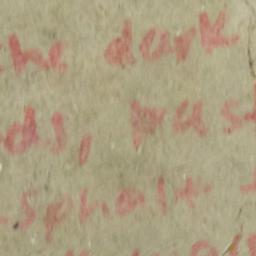 he dark
ds, pust
sphalt